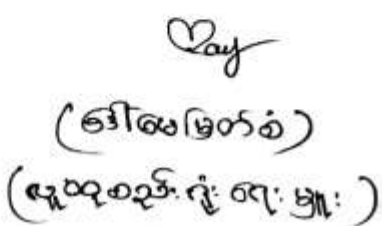 May
(ဒေါ်မေမြတ်စံ)
(လူထုစည်းရုံးရေးမှူး)